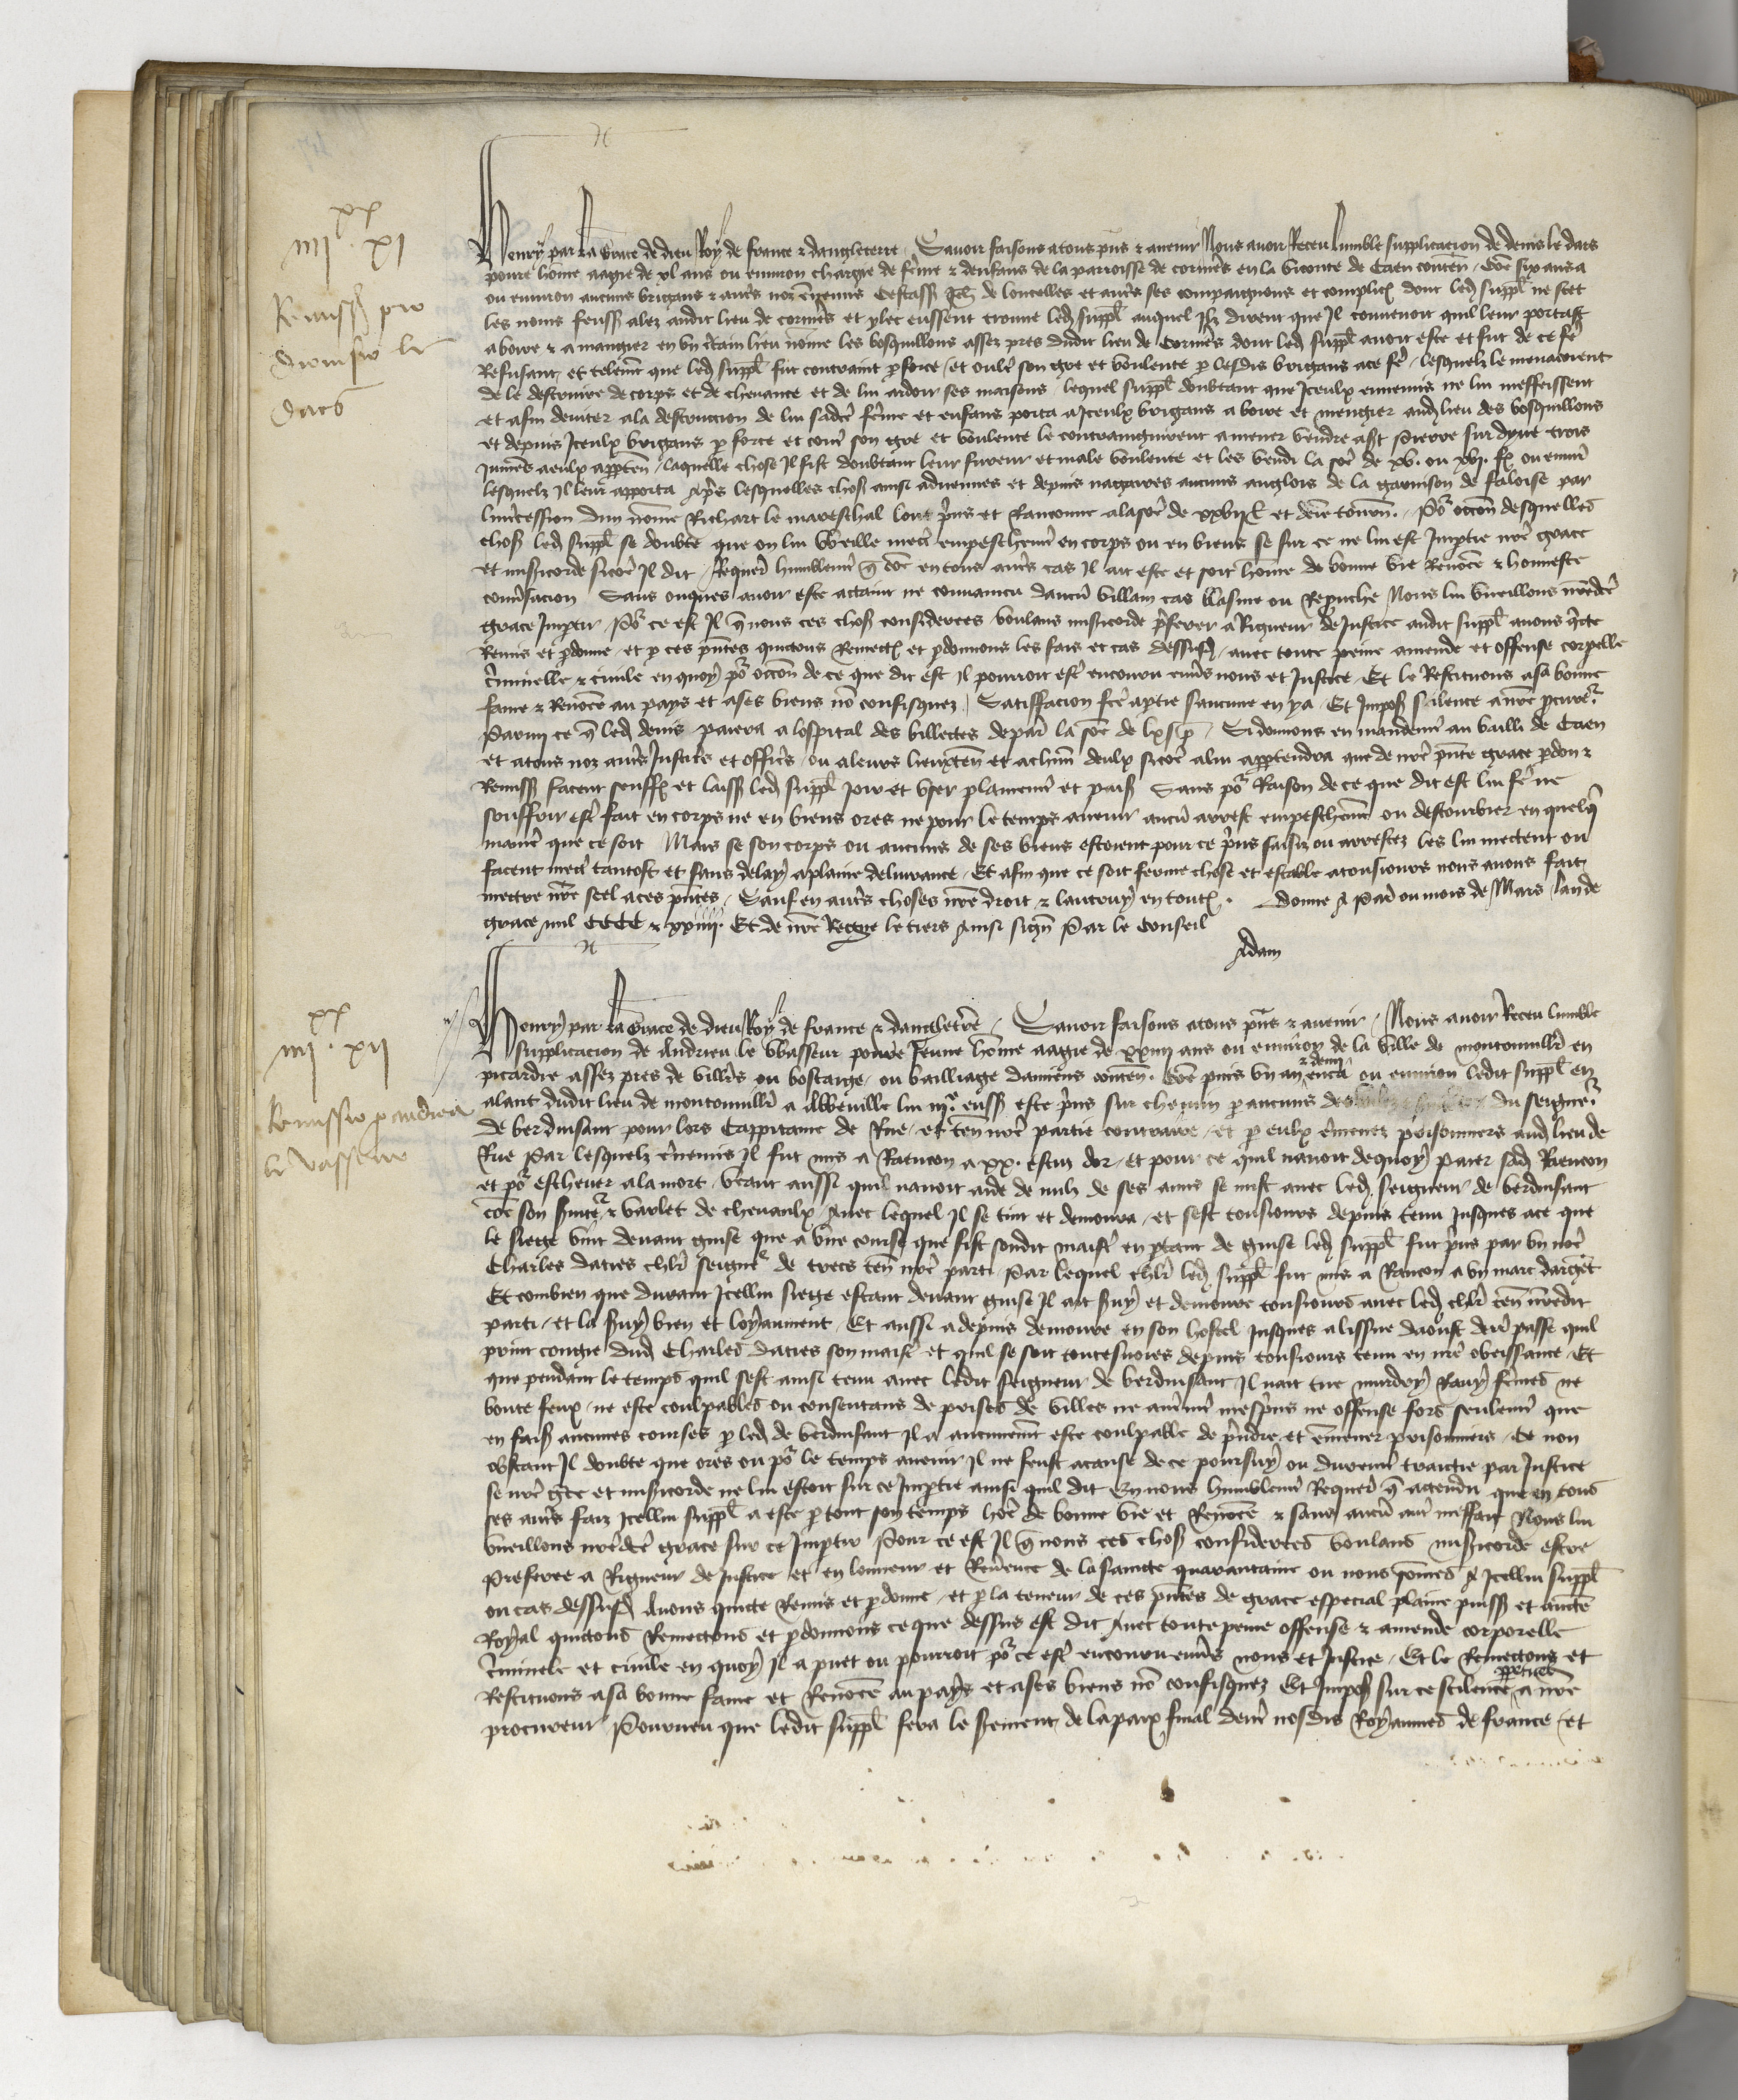 xx
iiii . xi
Remiss pro
dionisio le
dars
Henry par la grace de dieu Roy de france & dangleterre / Savoir faisons a tous pns & avenir Nous avoir Receu lumble supplicacion de denis le dars
povre home aagie de xl ans ou environ chargie de feme & denfans de la parroisse de cormes en la viconte de Caen conten / Come six ans a
ou environ aucuns brigans & aut's noz ennemis Cestass de loucelles et aut's ses compaignons et complices dont led suppl ne scet
les noms feuss alez audit lieu de cormes et ylec eussent trouve led suppl auquel Ilz dirent que Il convenoit quil leur portast
a boire & a mangier en un ctain lieu nome les bosquillons assez pres dudit lieu de Cormes dont led suppl avoit este et fut de ce fe
Refusant et telemt que led suppl fut contraint p force / et oult son gre et voulente p lesdis brigans a ce fe / lesquelz le menacoient
de le destruire de corps et de chevance et de lui ardoir ses maisons / lequel suppl doubtant que Iceulx ennemis ne lui meffeissent
et afin deviter a la destruccion de lui sadce feme et enfans porta a Iceulx brigans a boire et mengier aud lieu des bosquillons
et depuis Iceulx brigans p force et cont son gre et voulente le contraingnirent a mener vendre a st Pierre sur dyve trois
Jumens a eulx apparten / laquelle chose Il fist doubtant leur fureur et male voulente et les vendi la some de xv. ou xvj. fx ou envir
lesquelz Il leur apporta Apres lesquelles chos ainsi advenues et depuis nagaires aucuns anglois de la garnison de faloise par
lintcession dun nome Richart le mareschal lont pns et Ranconne a la some de xxvij l et demie tourn. / Po' occon desquelles
chos led suppl se doubte que on lui veille mect empeschemt en corps ou en biens se sur ce ne lui est Imptie nre grace
et misicorde sicoe Il dit / Requert humblemt q come en tous aut's cas Il ait este et soit home de bonne vie Renoee & honneste
convsacion Sans onques avoir este attaint ne convaincu daucu villain cas blasme ou Reprouche Nous lui vueillons nredce
grace Imptir Po' ce est Il q nous ces chos considerees voulans misicorde pferer a Rigueur de Justice audit suppl avons qcte
Remis et pdonne / et p ces pntes quictons Remectons et pdonnons les fais et cas dessusd / avec toute peine amende et offense corpelle
cminelle & civile en quoy po' occon de ce que dit est Il pourroit estre encouru envs nous et Justice / Et le Restituons a sa bonne
fame & Renoee au pays et a ses biens no confisquez / Satiffacion fce a ptie saucune en ya / Et Impos silence a nre pcureur
Parmy ce q led denis paiera a lospital des billectes de par la some de lx s p / Si donnons en mandemt au bailli de Caen
et a tous noz aut's Justiciers et officrs / ou a leurs lieuxten et a chun deulx sicoe a lui appartendra que de nre pnte grace pdon &
Remiss facent seuffr et laiss led suppl Joir et user plainemt et paisi Sans po' Raison de ce que dit est lui fe ne
souffrir est fait en corps ne en biens ores ne pour le temps avenir aucu arrest empeschemt ou destourbier en quelq
manie que ce soit Mais se son corps ou aucuns de ses biens estoient pour ce pns saisiz ou arrestez les lui mectent ou
facent mect tantost et sans delay a plaine delivrance / Et afin que ce soit ferme chose et estable a tousiours nous avons fait
mectre nre scel a ces pntes / Sauf en aut's choses nre droit & lautruy en toutes . Donne A Par ou mois de Mars lan de
grace mil CCCC & xxiiij. Et de nre Regne le tiers Ainsi sign Par le Conseil
Adam
xx
iiii . xii
Remissio p andrea
le vasseur
Henry par la grace de dieu Roy de france & dangleterre / Savoir faisons a tous pns & avenir / Nous avoir Receu lumble
supplicacion de Andrieu le Vasseur povre Jeune home aagie de xxiiij ans ou environ de la ville de montonviller en
picardie assez pres de villers ou boscaige / ou bailliage damiens conten . Come puis un an & demi enca ou environ ledit suppl en
alant dudit lieu de montonviller a Abbeville lui iije euss este pns sur chemin p aucuns du seigneur
de verduisant pour lors Cappitaine de Rue / et ten nre partie contraire / et p eulx emenez prisonniers aud lieu de
Rue Par lesquelz ennemis Il fut mis a Raencon a xx. escuz dor / et pour ce quil navoit de quoy paier sad Raencon
et po' eschever a la mort / veant aussi quil navoit aide de nulz de ses amis se mist avec led seigneur de verduisant
coe son svite & varlet de chevaulx / Avec lequel Il se tint et demoura / et sest tousiours depuis tenu Jusques a ce que
le siege vint devant guise que a une course que fist sondit maist en ptant de guise led suppl fut pns par un noe
Charles daties chlr seigneur de trecs ten nre parti Par lequel chlr led suppl fut mis a Rancon a un marc dargent
Et combien que durant Icellui siege estant devant guise Il ait suy et demoure tousiours avec led chlr ten nredit
parti / et la suy bien et loyaument / Et aussi a depuis demoure en son hostel Jusques a lissue daoust derr passe quil
print congie dud Charles daties son maist et quil se soit toutesvoies depuis tousiours tenu en nre obeissance / Et
que pendant le temps quil sest ainsi tenu avec ledit seigneur de verduisant Il nait tue murdry Ravy femes ne
boute feux / ne este coulpables ou consentans de prises de villes ne autmt mespns ne offense fors seulemt que
en fais aucunes courses p led de verduisant Il a aucunemt este coulpable de pndre et emmener prisonniers / Ce non
obstant Il doubte que ores ou po' le temps avenir Il ne feust a cause de ce poursuy ou duremt traictie par Justice
se nre gce et misicorde ne lui estoit sur ce Imptie ainsi quil dit En nous humblemt Requert q actendu que en tous
ses aut's faiz Icellui suppl a este p tout son temps home de bonne vie et Renoee & sans aucu aut meffait Nous lui
vueillons nredce grace sur ce Imptir Pour ce est Il q nous ces chos considerees voulans misicorde estre
preferee a Rigueur de Justice / et en lonneur et Reverence de la saincte quarantaine ou nous somes A Icellui suppl
ou cas dessusd Avons quicte Remis et pdonne / et p la teneur de ces pntes de grace especial plaine puiss et aucte
Royal quictons Remectons et pdonnons ce que dessus est dit Avec toute peine offense & amende corporelle
cminele et civile en quoy Il a puet ou pourroit po' ce est encouru envs nous et Justice / Et le Remectons et
Restituons a sa bonne fame et Renoee au pays et a ses biens no confisquez Et Impos sur ce scilence ppetuel a nre
procureur Pourveu que ledit suppl fera le sement de la paix final dent nosdis Royaumes de france / et